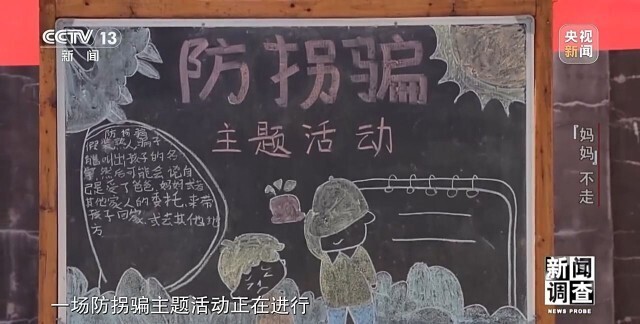 CCTV 13
新闻
央视
新闻
防拐骗
主题活动
防拐骗
能叫出孩子的名
然后可能会说自
己是受了爸爸、妈妈或者
其他家人的委托,来带
孩子回家或去其他地
方
『妈妈』不走
一场防拐骗主题活动正在进行
新闻
调查
NEWS PROBE